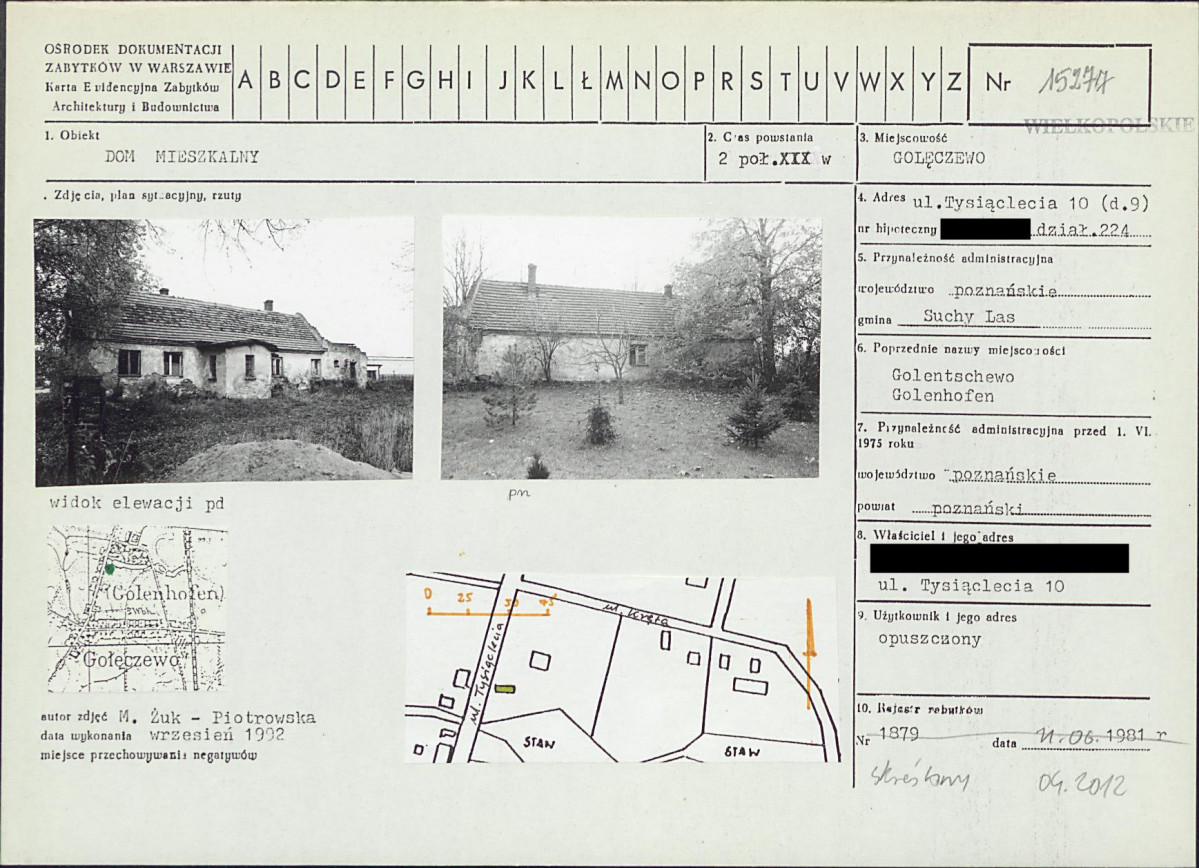 OŚRODEK DOKUMENTACJI
ZABYTKÓW W WARSZAWIE
Karta Ewidencyjna Zabytków
Architektury i Budownictwa
A B C D E F G H I J K L Ł M N O P R S T U V W X Y Z
Nr 15277
WIELKOPOLSKIE
1. Obiekt
DOM MIESZKALNY
2. Czas powstania
2 poł.XIX w
3. Miejscowość
GOLĘCZEWO
. Zdjęcia, plan sytuacyjny, rzuty
widok elewacji pd
pn
(Golenhofen)
Gołęczewo
autor zdjęć M. Żuk - Piotrowska
data wykonania wrzesień 1992
miejsce przechowywania negatywów
0 25 30 45
ul. Kręta
ul. Tysiąclecia
STAW
STAW
4. Adres ul.Tysiąclecia 10 (d.9)
nr hipoteczny dział.224
5. Przynależność administracyjna
województwo poznańskie
gmina Suchy Las
6. Poprzednie nazwy miejscowości
Golentschewo
Golenhofen
7. Przynależność administracyjna przed 1. VI.
1975 roku
województwo poznańskie
powiat poznański
8. Właściciel i jego adres
ul. Tysiąclecia 10
9. Użytkownik i jego adres
opuszczony
10. Rejestr zabytków
Nr 1879 data 11.06.1981 r
skreślony 04.2012